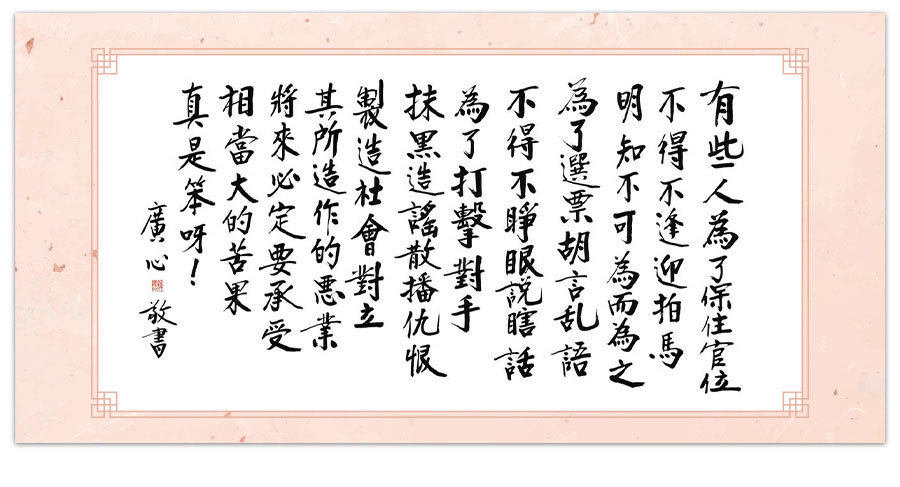 有些人為了保住官位
不得不逢迎拍馬
明知不可為而為之
為了選票胡言乱語
不得不睜眼説瞎話
為了打擊對手
抹黑造謠散播仇恨
製造社會對立
其所造作的惡業
將來必定要承受
相當大的苦果
真是笨呀！
廣心 敬書